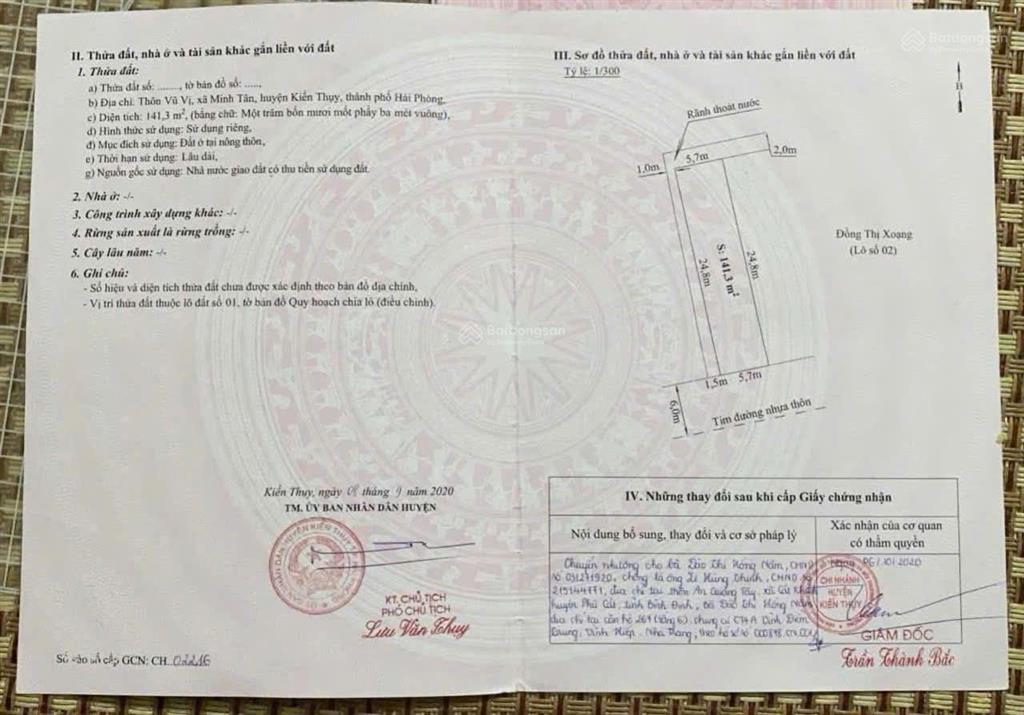 II. Thửa đất, nhà ở và tài sản khác gắn liền với đất
1. Thửa đất:
a) Thửa đất số: ........, tờ bản đồ số: .....,
b) Địa chỉ: Thôn Vũ Vị, xã Minh Tân, huyện Kiến Thụy, thành phố Hải Phòng,
c) Diện tích: 141,3 m², (bằng chữ: Một trăm bốn mươi mốt phẩy ba mét vuông),
d) Hình thức sử dụng: Sử dụng riêng,
đ) Mục đích sử dụng: Đất ở tại nông thôn,
e) Thời hạn sử dụng: Lâu dài,
g) Nguồn gốc sử dụng: Nhà nước giao đất có thu tiền sử dụng đất.
2. Nhà ở: -/-
3. Công trình xây dựng khác: -/-
4. Rừng sản xuất là rừng trồng: -/-
5. Cây lâu năm: -/-
6. Ghi chú:
- Số hiệu và diện tích thửa đất chưa được xác định theo bản đồ địa chính,
- Vị trí thửa đất thuộc lô đất số 01, tờ bản đồ Quy hoạch chia lô (điều chỉnh).
Kiến Thụy, ngày 08 tháng 9 năm 2020
TM. ỦY BAN NHÂN DÂN HUYỆN
KT. CHỦ TỊCH
PHÓ CHỦ TỊCH
Lưu Văn Thụy
Số vào sổ cấp GCN: CH 02216
III. Sơ đồ thửa đất, nhà ở và tài sản khác gắn liền với đất
Tỷ lệ: 1/300
B
Rãnh thoát nước
1,0m
5,7m
2,0m
24,8m
S: 141,3 m²
24,8m
Đồng Thị Xoạng
(Lô số 02)
1,5m
5,7m
6,0m
Tim đường nhựa thôn
IV. Những thay đổi sau khi cấp Giấy chứng nhận
Nội dung bổ sung, thay đổi và cơ sở pháp lý
Xác nhận của cơ quan
có thẩm quyền
Chuyển nhượng cho bà Đào Thị Hồng Nấm, CMND
số 031271920, chồng là ông
CMND số
215144771, địa chỉ tại: thôn An Quang Tây, xã Cát Khánh
huyện Phù Cát, tỉnh Bình Định, Bà Đào Thị Hồng Nấm
địa chỉ tại căn hộ chung cư CT4A
Vĩnh Hiệp, Nha Trang, theo hồ sơ số
10/2020
CHI NHÁNH
HUYỆN
KIẾN THỤY
GIÁM ĐỐC
Trần Thành Bắc
Batdongsan
Batdongsan
Batdongsan